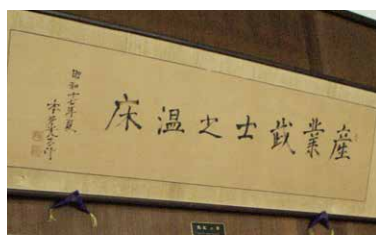 産業戦士之温床
昭和十七年夏